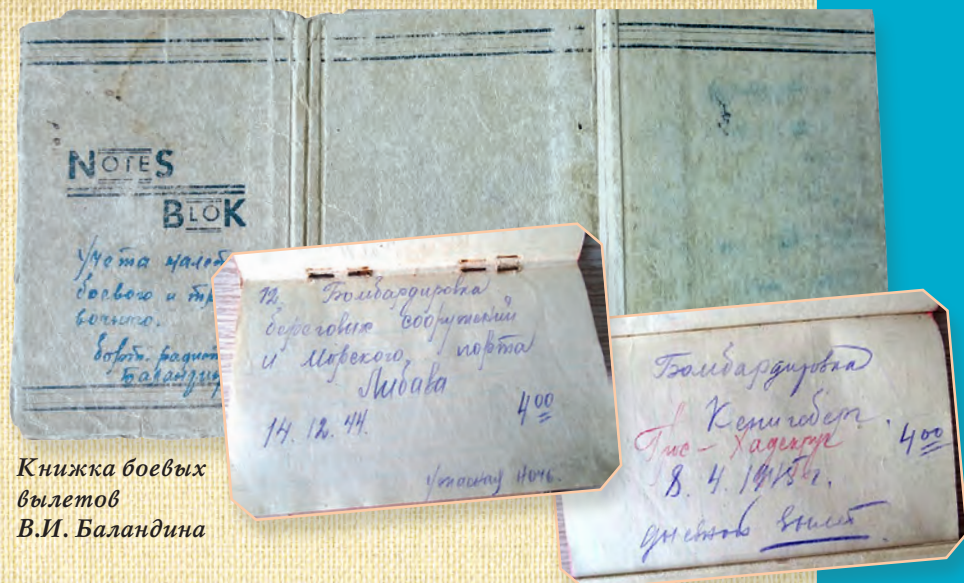 NOTES
BLOK
Учета налет
боевого и тр
вочного.
Борт. радист
Баландин
12. Бомбардировка
береговых сооружений
и Морского порта
Либава
14. 12. 44. 4 00
Ужасная ночь.
Бомбардировка
Кенигсберг.
4 00
8. 4. 1945 г.
дневной вылет
Книжка боевых
вылетов
В.И. Баландина